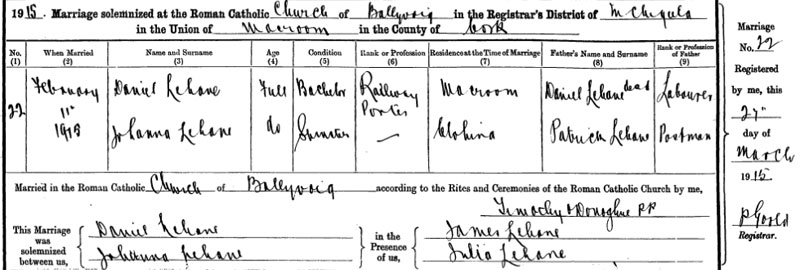 1915. Marriage solemnized at the Roman Catholic Church of Ballyvoig in the Registrar's District of Inchigeela
in the Union of Macroom in the County of Cork
No. When Married Name and Surname Age Condition Rank or Profession Residence at the Time of Marriage Father's Name and Surname Rank or Profession of Father
(1) (2) (3) (4) (5) (6) (7) (8) (9)
22 February 11th 1915 Daniel Lehane Full Bachelor Railway Porter Macroom Daniel Lehane dead Labourer
Johanna Lehane do Spinster — Clohina Patrick Lehane Postman
Married in the Roman Catholic Church of Ballyvoig according to the Rites and Ceremonies of the Roman Catholic Church by me,
Timothy O'Donoghue PP
This Marriage was solemnized between us,
Daniel Lehane
Johanna Lehane
in the Presence of us,
James Lehane
Julia Lehane
Marriage
No. 22
Registered
by me, this
27th
day of
March
1915.
Registrar.